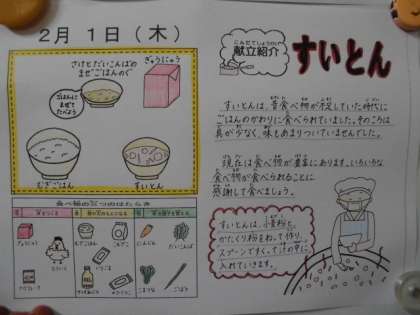 2月 1日(木)
さけとだいこんばの
まぜごはんのぐ
ぎゅうにゅう
ごはんに
まぜて
たべよう
むぎごはん
すいとん
食べ物の三つのはたらき
赤
黄
緑
ぎゅうにゅう
とりにく
むぎごはん
にんじん
だいこんば
こまつな
ごぼう
こんだてしょうかい
献立紹介
すいとん
すいとんは、昔食べ物が不足していた時代に
ごはんのかわりに食べられていました。そのころは
具が少なく、味もあまりついていませんでした。
現在は食べ物が豊富にあります。いろいろな
食べ物が食べられることに
感謝して食べましょう。
すいとんは、小麦粉と
かたくり粉をねって作り、
スプーンですくって汁の中に
入れていきます。